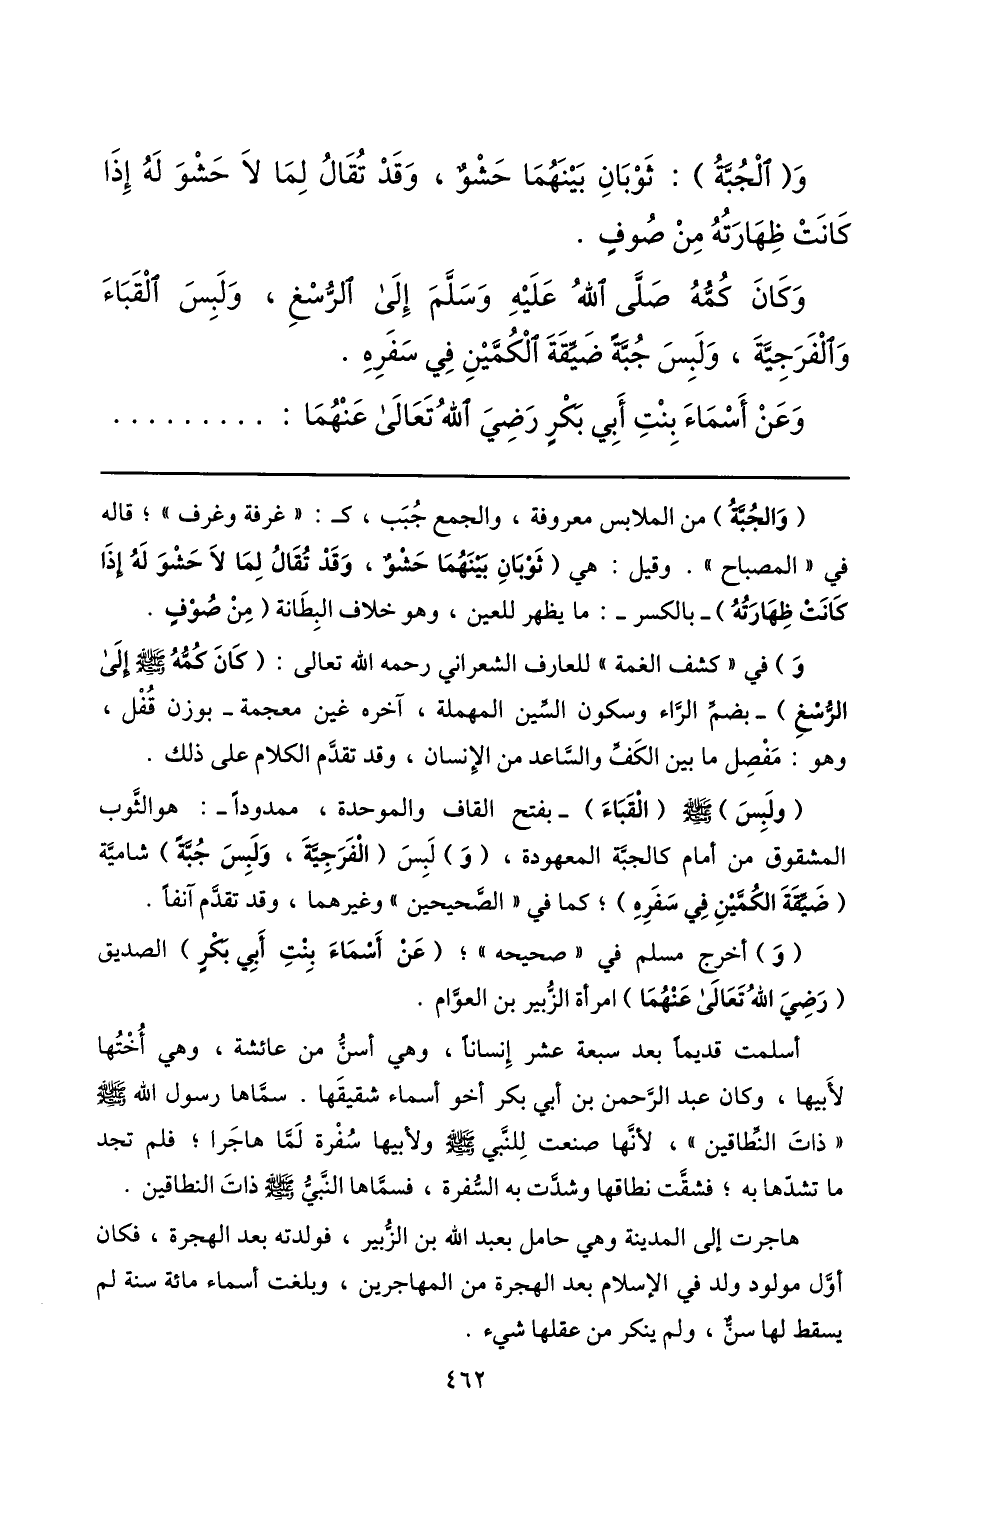 وَ( ٱلْجُبَّةُ ) : ثَوْبَانِ بَيْنَهُمَا حَشْوٌ ، وَقَدْ تُقَالُ لِمَا لاَ حَشْوَ لَهُ إِذَا
كَانَتْ ظِهَارَتُهُ مِنْ صُوفٍ .
وَكَانَ كُمُّهُ صَلَّى ٱللهُ عَلَيْهِ وَسَلَّمَ إِلَىٰ ٱلرُّسْغِ ، وَلَبِسَ ٱلْقَبَاءَ
وَٱلْفَرَجِيَّةَ ، وَلَبِسَ جُبَّةً ضَيِّقَةَ ٱلْكُمَّيْنِ فِي سَفَرِهِ .
وَعَنْ أَسْمَاءَ بِنْتِ أَبِي بَكْرٍ رَضِيَ ٱللهُ تَعَالَىٰ عَنْهُمَا : . . . . . . . . .
( وَالجُبَّةُ ) من الملابس معروفة ، والجمع جُبَب ، كـ : « غرفة وغرف » ؛ قاله
في « المصباح » . وقيل : هي ( ثَوْبَانِ بَيْنَهُمَا حَشْوٌ ، وَقَدْ تُقَالُ لِمَا لاَ حَشْوَ لَهُ إِذَا
كَانَتْ ظِهَارَتُهُ ) ـ بالكسر ـ : ما يظهر للعين ، وهو خلاف البِطَانة ( مِنْ صُوْفٍ .
وَ ) في « كشف الغمة » للعارف الشعراني رحمه الله تعالى : ( كَانَ كُمُّهُ ﷺ إِلَىٰ
الرُّسْغِ ) ـ بضمِّ الرَّاء وسكون السِّين المهملة ، آخره غين معجمة ـ بوزن قُفْل ،
وهو : مَفْصِل ما بين الكَفِّ والسَّاعد من الإنسان ، وقد تقدَّم الكلام على ذلك .
( ولَبِسَ ) ﷺ ( الْقَبَاءَ ) ـ بفتح القاف والموحدة ، ممدوداً ـ : هو الثَّوب
المشقوق من أمام كالجبَّة المعهودة ، ( وَ ) لَبِسَ ( الْفَرَجِيَّةَ ، وَلَبِسَ جُبَّةً ) شاميَّة
( ضَيِّقَةَ الكُمَّيْنِ فِي سَفَرِهِ ) ؛ كما في « الصَّحيحين » وغيرهما ، وقد تقدَّم آنفاً .
( وَ ) أخرج مسلم في « صحيحه » ؛ ( عَنْ أَسْمَاءَ بِنْتِ أَبِي بَكْرٍ ) الصديق
( رَضِيَ اللهُ تَعَالَىٰ عَنْهُمَا ) امرأة الزُّبير بن العوَّام .
أسلمت قديماً بعد سبعة عشر إِنساناً ، وهي أسنُّ من عائشة ، وهي أُخْتُها
لأَبيها ، وكان عبد الرَّحمن بن أبي بكر أخو أسماء شقيقَها . سمَّاها رسول الله ﷺ
« ذاتَ النِّطاقين » ، لأنَّها صنعت لِلنَّبي ﷺ ولأبيها سُفْرة لَمَّا هاجَرا ؛ فلم تجد
ما تشدّها به ؛ فشقَّت نطاقها وشدَّت به السُّفرة ، فسمَّاها النَّبيُّ ﷺ ذاتَ النطاقين .
هاجرت إلى المدينة وهي حامل بعبد الله بن الزُّبير ، فولدته بعد الهجرة ، فكان
أوَّل مولود ولد في الإسلام بعد الهجرة من المهاجرين ، وبلغت أسماء مائة سنة لم
يسقط لها سنٌّ ، ولم ينكر من عقلها شيء .
٤٦٢